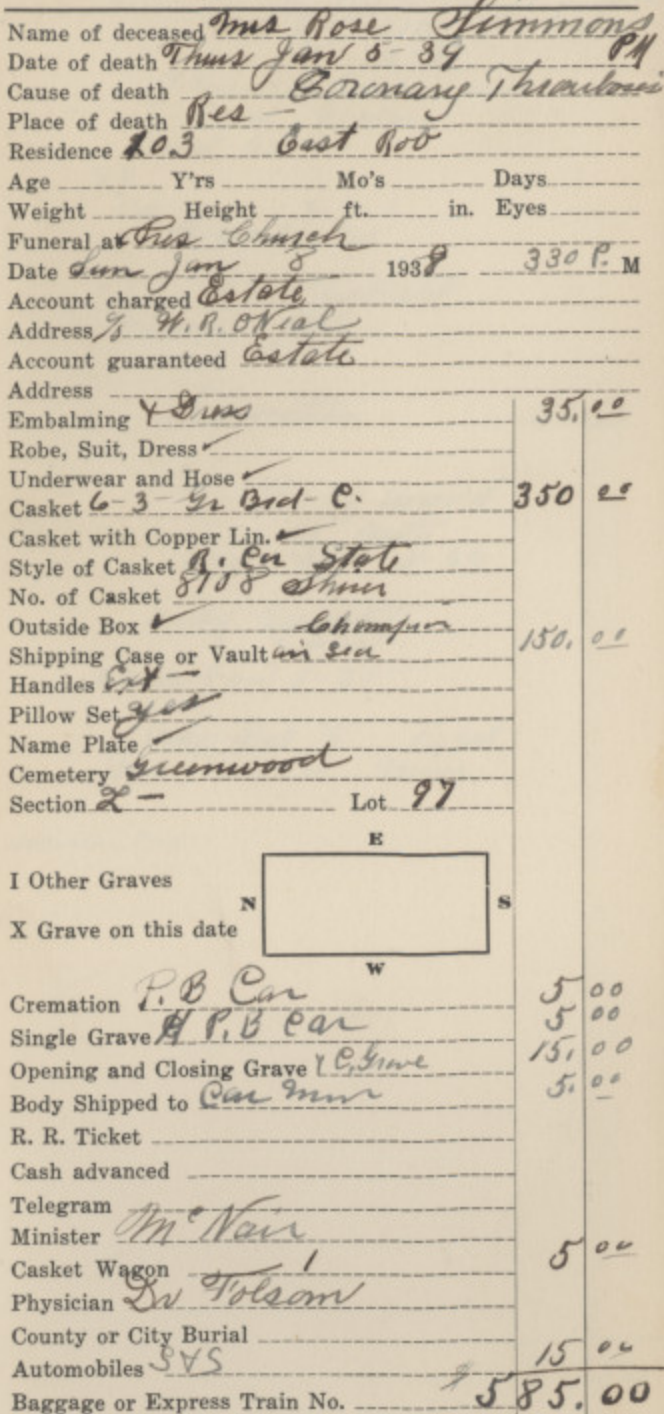 Name of deceased Mrs Rose Simmons
Date of death Thurs Jan 5-39 PM
Cause of death Coronary Thrombosis
Place of death Res -
Residence 203 East Rob
Age Y'rs Mo's Days
Weight Height ft. in. Eyes
Funeral at Pres Church
Date Sun Jan 8 1939 330 P. M
Account charged Estate
Address c/o W. R. ONeal
Account guaranteed Estate
Address
Embalming & Dress 35.00
Robe, Suit, Dress ✓
Underwear and Hose ✓
Casket 6-3 Gr Brd - C. 350 00
Casket with Copper Lin. ✓
Style of Casket State
No. of Casket 8108
Outside Box ✓ Champion
Shipping Case or Vault air seal 150.00
Handles Ext -
Pillow Set yes
Name Plate ✓
Cemetery Greenwood
Section L - Lot 97
E
I Other Graves
N S
X Grave on this date
W
Cremation P. B Car 5 00
Single Grave H P. B Car 5 00
Opening and Closing Grave & C. Grave 15.00
Body Shipped to Car Min 5.00
R. R. Ticket
Cash advanced
Telegram
Minister McNair
Casket Wagon 1 5 00
Physician Dr Folsom
County or City Burial
Automobiles 15 00
Baggage or Express Train No. 585.00